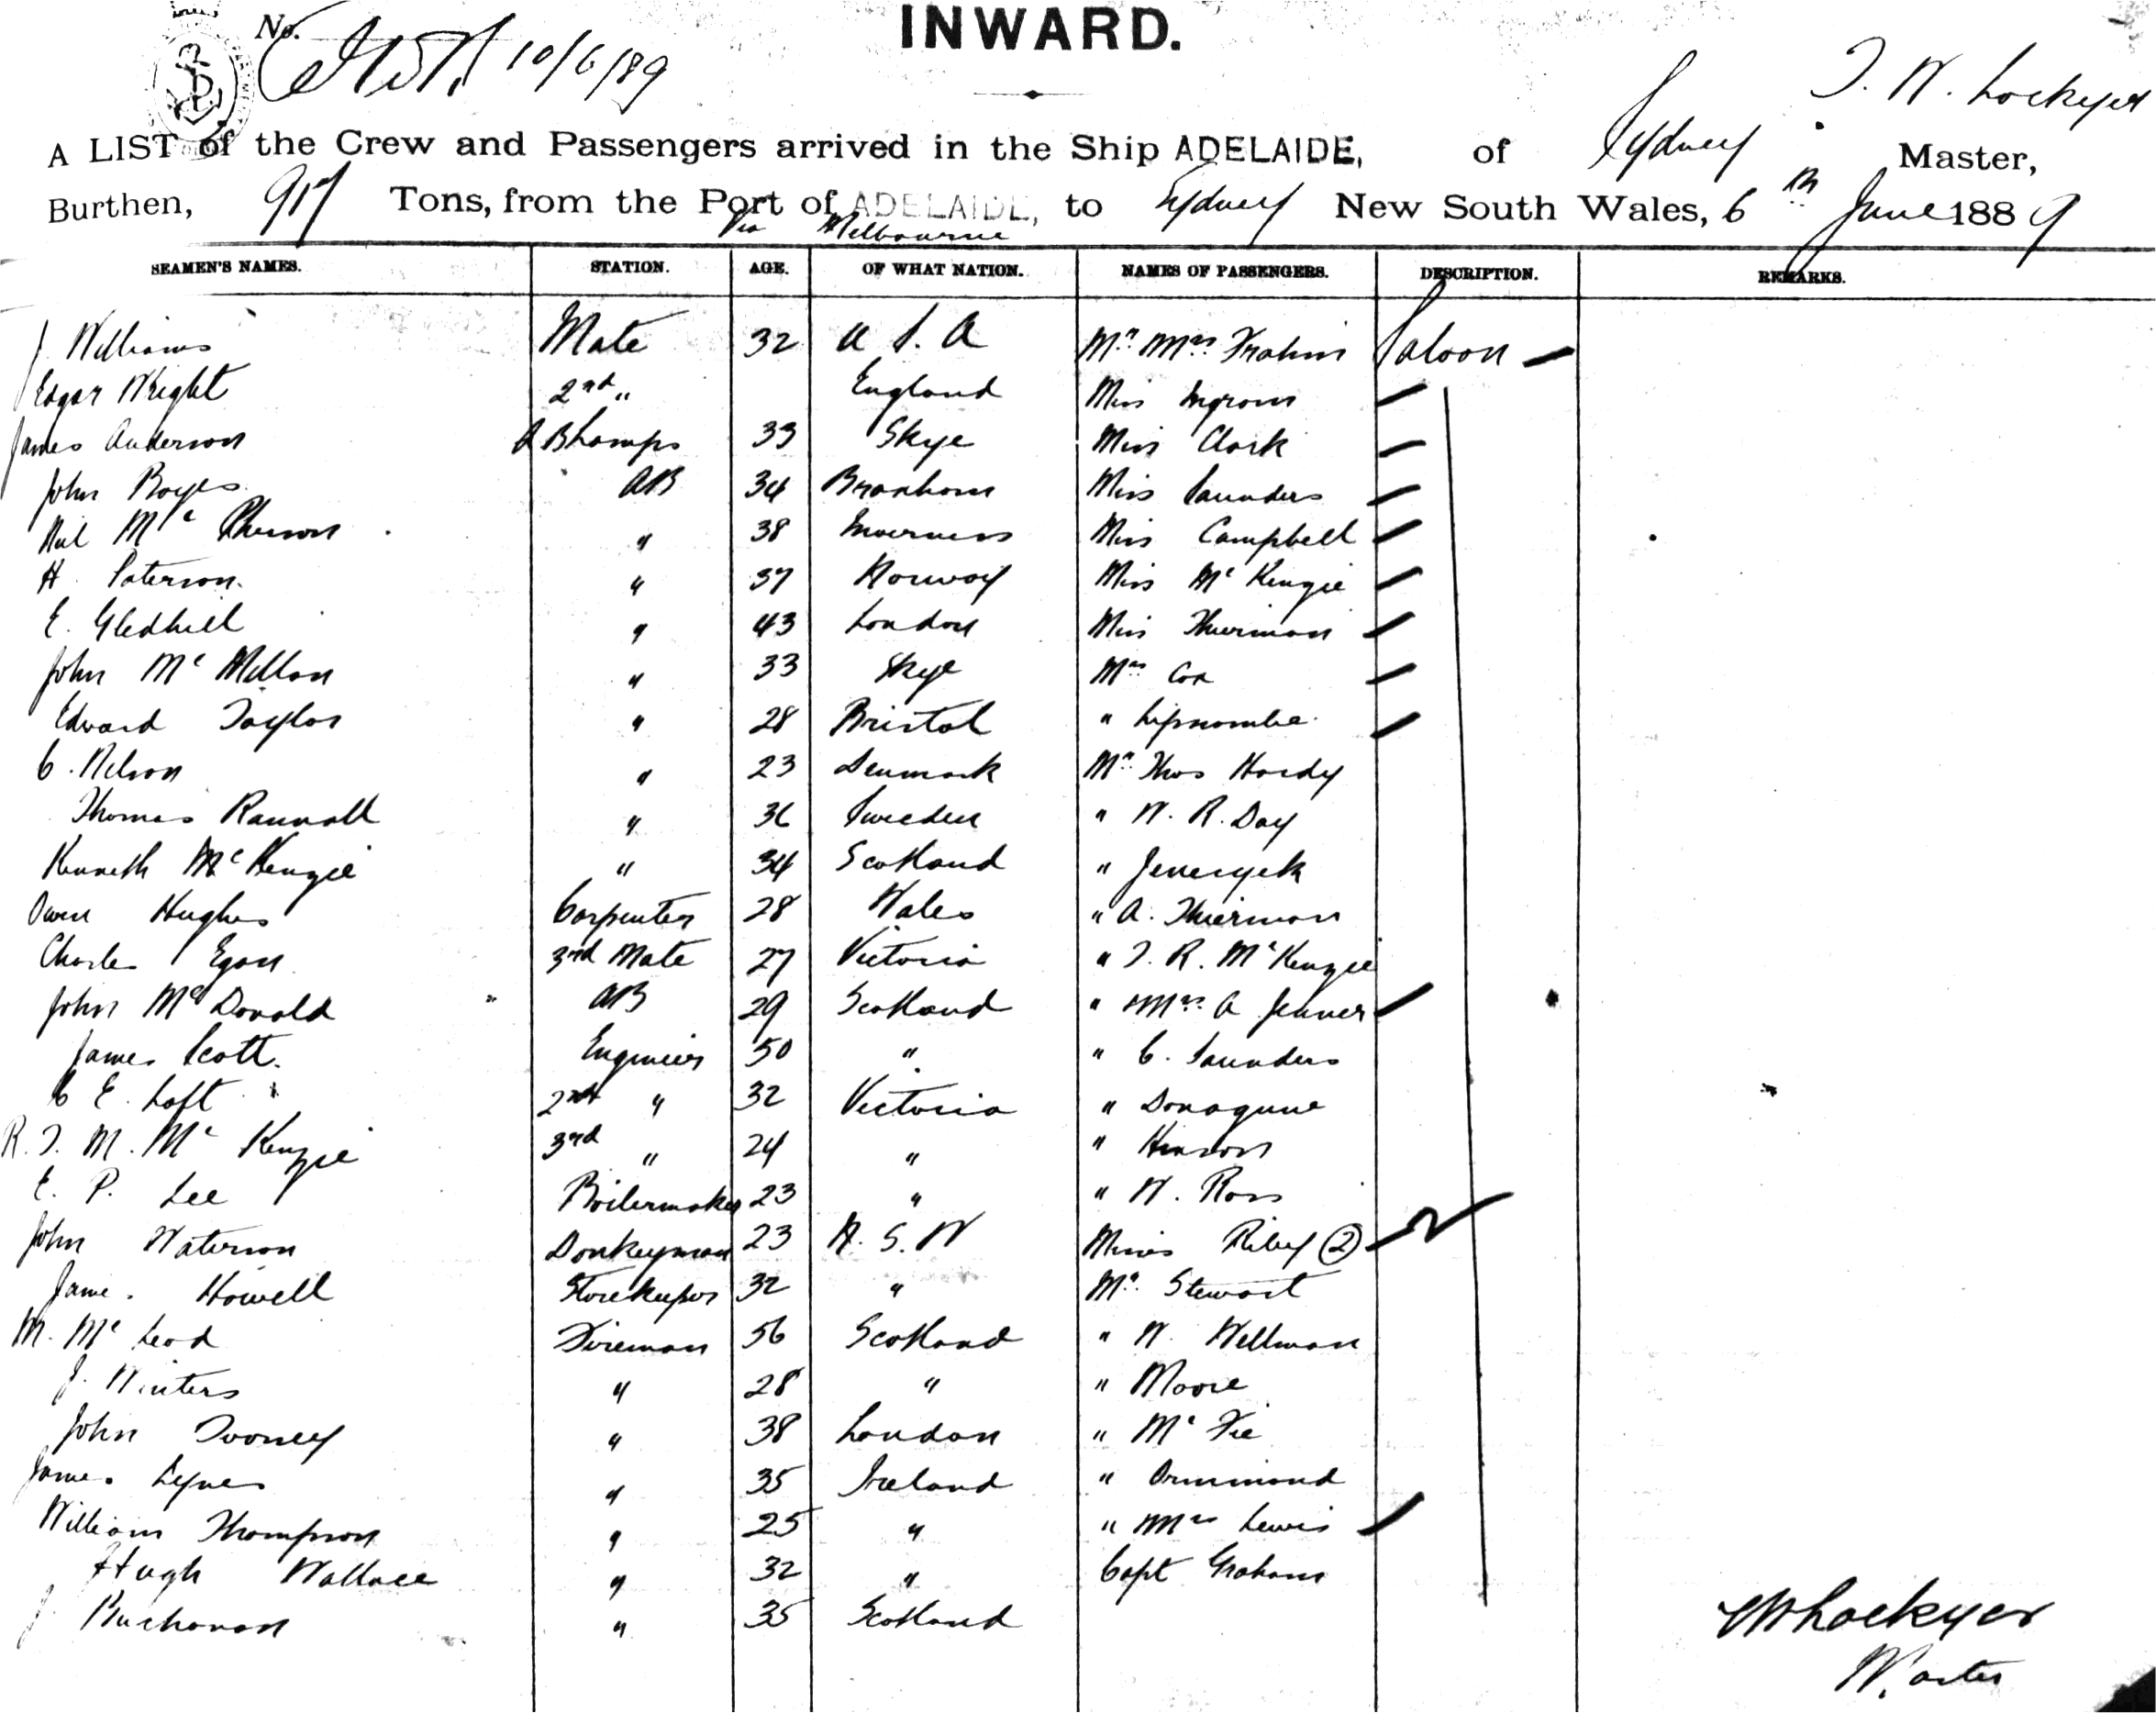 No.
10/6/89
INWARD.
T. W. Lockyer
A LIST of the Crew and Passengers arrived in the Ship ADELAIDE, of Sydney Master,
Burthen, 917 Tons, from the Port of ADELAIDE, to Sydney New South Wales, 6th June 1889
Via Melbourne
SEAMEN'S NAMES. STATION. AGE. OF WHAT NATION. NAMES OF PASSENGERS. DESCRIPTION. REMARKS.
J Williams Mate 32 U S A Mr Mrs Saloon
Edgar Wright 2nd " England Miss Ingram
James Anderson A B Lamps 33 Skye Miss Clark
John Boyes AB 34 Miss Saunders
Neil McPherson " 38 Inverness Miss Campbell
H. Paterson " 37 Norway Miss McKenzie
E. Gledhill " 43 London Miss Thierman
John McMillan " 33 Skye Mrs Cox
Edward Taylor " 28 Bristol " Lipscombe
C. Nelson " 23 Denmark Mr Thos Hardy
Thomas " 36 Sweden " W. R. Day
Kenneth McKenzie " 34 Scotland "
Owen Hughes Carpenter 28 Wales " A. Thierman
Charles Egan 3rd Mate 27 Victoria " T. R. McKenzie
John McDonald AB 29 Scotland " Mrs A Jenner
James Scott Engineer 50 " " C. Saunders
C E. Loft 2nd " 32 Victoria "
R. T. M. McKenzie 3rd " 24 " "
E. P. Lee Boilermaker 23 " " W. Ross
John Waterson Donkeyman 23 N. S. W Misses Riley 2
James Howell Storekeeper 32 " Mr. Stewart
M. McLeod Fireman 56 Scotland " W. Wellman
J. Winters " 28 " " Moore
John Toomey " 38 London " McFie
James Lynes " 35 Ireland " Ormmond
William Thompson " 25 " " Mrs Lewis
Hugh Wallace " 32 " Capt Graham
J Buchanan " 35 Scotland
Lockyer
Master